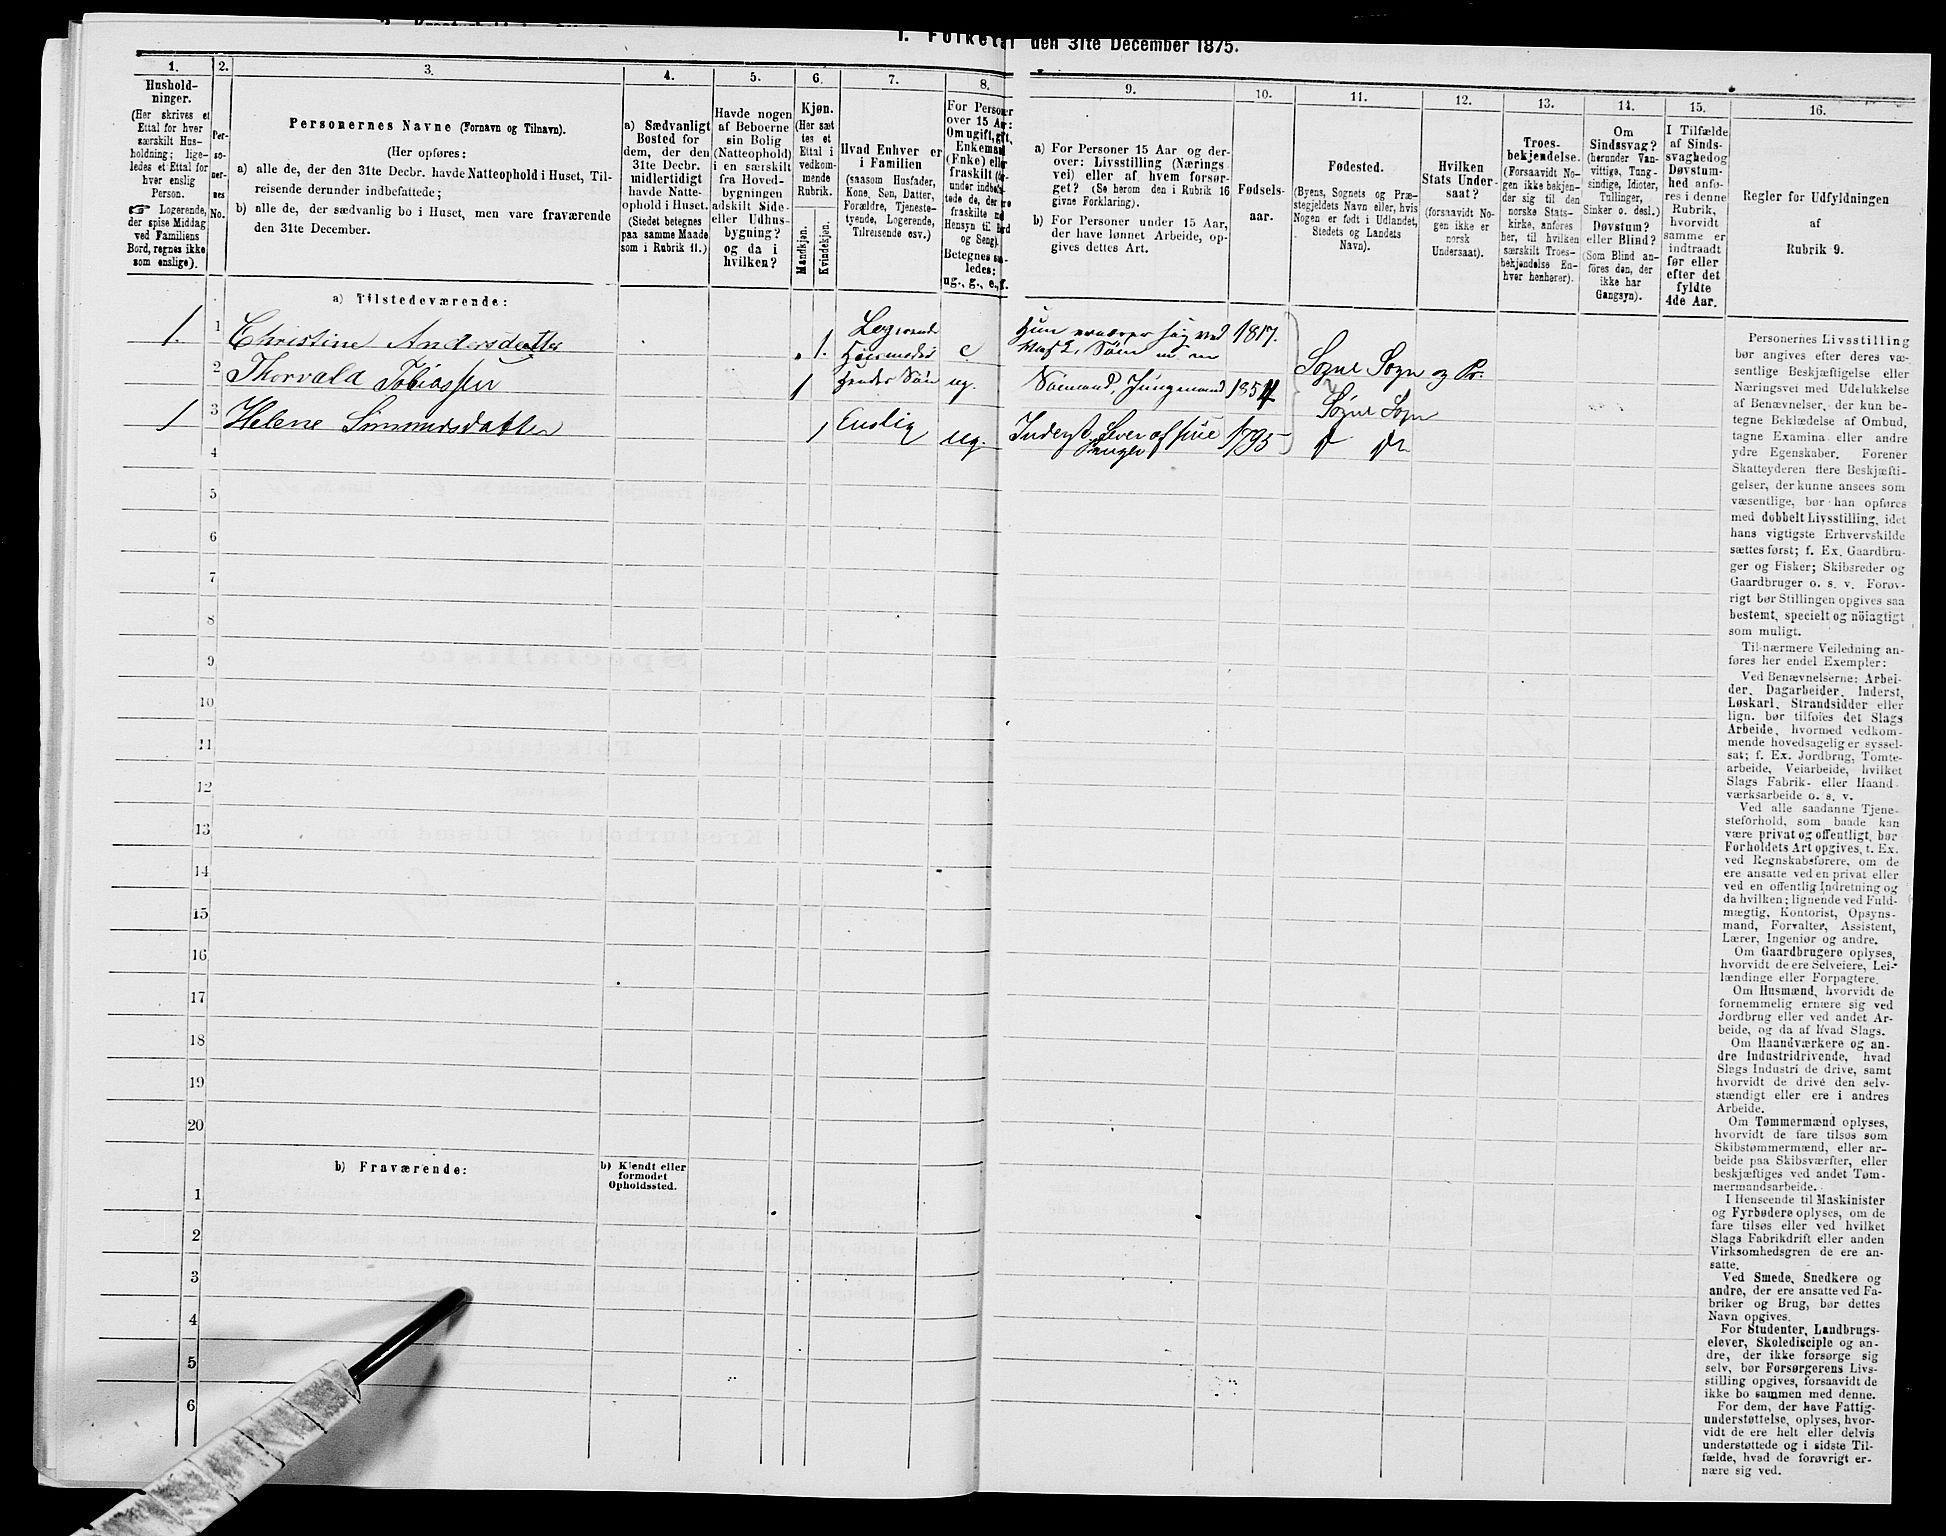 I. Folketal den 31te December 1875.
1.
2.
3.
4.
5.
6.
7.
8.
9.
10.
11.
12.
13.
14.
15.
16.
Hushold-
ninger.
(Her skrives et
Ettal for hver
særskilt Hus-
holdning; lige-
ledes et Ettal for
hver enslig
Person.
☞ Logerende,
der spise Middag
ved Familiens
Bord, regnes ikke
som enslige).
Per-
so-
ner-
nes
No.
Personernes Navne (Fornavn og Tilnavn).
(Her opføres:
a) alle de, der den 31te Decbr. havde Natteophold i Huset, Til-
reisende derunder indbefattede;
b) alle de, der sædvanlig bo i Huset, men vare fraværende
den 31te December.
a) Sædvanligt
Bosted for
dem, der den
31te Decbr.
midlertidigt
havde Natte-
ophold i Huset.
(Stedet betegnes
paa samme Maade
som i Rubrik 11.)
Havde nogen
af Beboerne
sin Bolig
(Natteophold)
i en særskilt
fra Hoved-
bygningen
adskilt Side-
eller Udhus-
bygning?
og da i
hvilken?
Kjøn.
(Her sæt
tes et
Ettal i
vedkom-
mende
Rubrik.
Mandkjøn.
Kvindekjøn.
Hvad Enhver er
i Familien
(saasom Husfader,
Kone, Søn, Datter,
Forældre, Tjeneste-
tyende, Logerende,
Tilreisende osv.)
For Personer
over 15 Aar:
Om ugift, gift,
Enkemand
(Enke) eller
fraskilt
Hensyn til Bord
og Seng).
Betegnes saa-
ledes:
ug., g., e., f.
a) For Personer 15 Aar og der-
over: Livsstilling (Nærings
vei) eller af hvem forsør-
get? (Se herom den i Rubrik 16
givne Forklaring).
b) For Personer under 15 Aar,
der have lønnet Arbeide, op-
gives dettes Art.
Fødsels-
aar.
Fødested.
(Byens, Sognets og Præ-
stegjeldets Navn eller, hvis
Nogen er født i Udlandet,
Stedets og Landets
Navn).
Hvilken
Stats Under-
saat?
(forsaavidt No-
gen ikke er
norsk
Undersaat).
Troes-
bekjendelse.
(Forsaavidt No-
gen ikke bekjen-
der sig til den
norske Stats-
kirke, anføres
her, til hvilken
særskilt Troes-
bekjendelse En-
hver henhører).
Om
Sindssvag?
(herunder Van-
vittige, Idioter,
Tullinger,
Sinker o. desl.)
Døvstum?
eller Blind?
(Som Blind an-
føres den, der
ikke har
Gangsyn).
I Tilfælde
af Sinds-
svaghedog
Døvstum-
hed anfø-
res i denne
Rubrik,
hvorvidt
samme er
indtraadt
før eller
efter det
fyldte
4de Aar.
Regler for Udfyldningen
af
Rubrik 9.
a) Tilstedeværende:
1. 1 Christine Andersdatter 1. Logerende Huusmoder e Hun ernærer sig ved Søm m. m 1817. Søgne Sogn og Pr:
2 Thorvald Tobiassen 1 Hendes Søn ug. Sømand, Jungmand 1854 Søgne Sogn
1 3 Helene Simmursdatter 1 Enslig ug. Inderst Lever af sine Penger 1795
4
5
6
7
8
9
10
11
12
13
14
15
16
17
18
19
20
b) Fraværende:
b) Kjendt eller
formodet
Opholdssted.
1
2
3
4
5
6
Personernes Livsstilling
bør angives efter deres væ-
sentlige Beskjæftigelse eller
Næringsvei med Udelukkelse
af Benævnelser, der kun be-
tegne Beklædelse af Ombud,
tagne Examina eller andre
ydre Egenskaber. Forener
Skatteyderen flere Beskjæfti-
gelser, der kunne ansees som
væsentlige, bør han opføres
med dobbelt Livsstilling, idet
hans vigtigste Erhvervskilde
sættes først; f. Ex. Gaardbru-
ger og Fisker; Skibsreder og
Gaardbruger o. s. v. Forøv-
rigt bør Stillingen opgives saa
bestemt, specielt og nöiagtigt
som muligt.
Til nærmere Veiledning an-
føres her endel Exempler:
Ved Benævnelserne: Arbei-
der, Dagarbeider, Inderst,
Løskarl, Strandsidder eller
lign. bør tilføies det Slags
Arbeide, hvormed vedkom-
mende hovedsagelig er syssel-
sat; f. Ex. Jordbrug, Tomte-
arbeide, Veiarbeide, hvilket
Slags Fabrik- eller Haand
værksarbeide o. s. v.
Ved alle saadanne Tjene-
steforhold, som baade kan
være privat og offentligt, bør
Forholdets Art opgives, t. Ex.
ved Regnskabsførere, om de
ere ansatte ved en privat eller
ved en offentlig Indretning og
da hvilken; lignende ved Fuld-
mægtig, Kontorist, Opsyns-
mand, Forvalter, Assistent,
Lærer, Ingeniør og andre.
Om Gaardbrugere oplyses,
hvorvidt de ere Selveiere, Lei-
lændinge eller Forpagtere.
Om Husmænd, hvorvidt de
fornemmelig ernære sig ved
Jordbrug eller ved andet Ar-
beide, og da af hvad Slags.
Om Haandværkere og an-
dre Industridrivende, hvad
Slags Industri de drive, samt
hvorvidt de drive den selv-
stændigt eller ere i andres
Arbeide.
Om Tømmermænd oplyses,
hvorvidt de fare tilsøs som
Skibstømmermænd, eller ar-
beide paa Skibsværfter, eller
beskjæftiges ved andet Tøm-
mermandsarbeide.
I Henseende til Maskinister
og Fyrbødere oplyses, om de
fare tilsøs eller ved hvilket
Slags Fabrikdrift eller anden
Virksomhedsgren de ere an-
satte.
Ved Smede, Snedkere og
andre, der ere ansatte ved Fa-
briker og Brug, bør dettes
Navn opgives.
For Studenter, Landbrugs-
elever, Skoledisciple og an-
dre, der ikke forsørge sig
selv, bør Forsørgerens Livs-
stilling opgives, forsaavidt de
ikke bo sammen med denne.
For dem, der have Fattig-
understøttelse, oplyses, hvor-
vidt de ere helt eller delvis
understøttede og i sidste Til-
fælde, hvad de forøvrigt er-
nære sig ved.